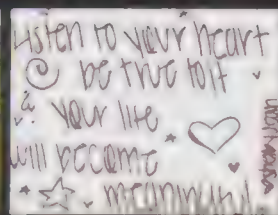 Listen to your heart
be true to it
your life
will become
meaningful.